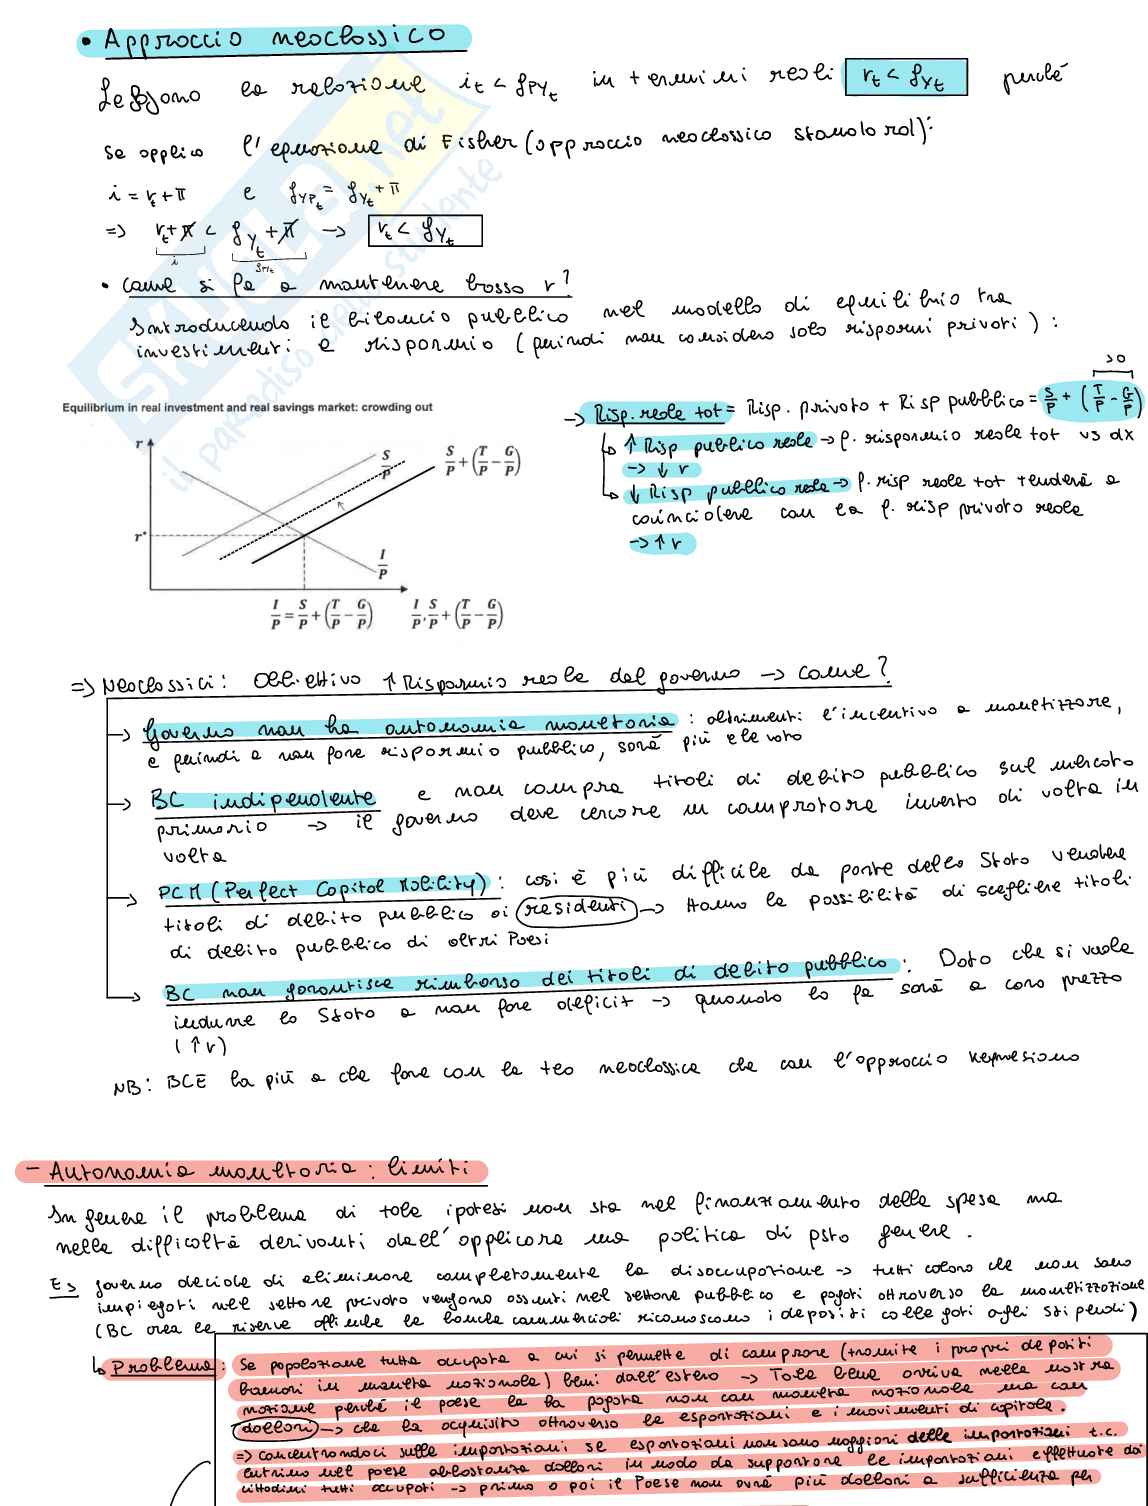 • Approccio neoclassico
Leggono la relazione i_t < g_PY_t in termini reali r_t < g_Y_t perché
se applico l'equazione di Fisher (approccio neoclassico standard):
i = r_t + π e g_YP_t = g_Y_t + π
=> r_t + π < g_Y_t + π → r_t < g_Y_t
i
• Come si fa a mantenere basso r?
Introducendo il bilancio pubblico nel modello di equilibrio tra
investimenti e risparmio (quindi non considero solo risparmi privati):
>0
→ Risp. reale tot = Risp. privato + Risp pubblico = S/P + (T/P - G/P)
↑ Risp pubblico reale → f. risparmio reale tot vs dx
→ ↓ r
↓ Risp pubblico reale → f. risp reale tot tenderà a
coincidere con la f. risp privato reale
→ ↑ r
Equilibrium in real investment and real savings market: crowding out
r
S/P
S/P + (T/P - G/P)
r*
I/P
I/P = S/P + (T/P - G/P)
I/P, S/P + (T/P - G/P)
=> Neoclassici: Obbiettivo ↑ Risparmio reale del governo → come?
→ Governo non ha autonomia monetaria: altrimenti l'incentivo a monetizzare,
e quindi a non fare risparmio pubblico, sarà più elevato
→ BC indipendente e non compra titoli di debito pubblico sul mercato
primario → il governo deve cercare un compratore incerto di volta in
volta
→ PCM (Perfect Capital Mobility): così è più difficile da parte dello Stato vendere
titoli di debito pubblico ai residenti → Hanno la possibilità di scegliere titoli
di debito pubblico di altri Paesi
→ BC non garantisce rimborso dei titoli di debito pubblico: Dato che si vuole
indurre lo Stato a non fare deficit → quando lo fa sarà a caro prezzo
(↑ r)
NB: BCE ha più a che fare con la teo neoclassica che con l'approccio keynesiano
- Autonomia monetaria: limiti
In genere il problema di tale ipotesi non sta nel finanziamento della spesa ma
nelle difficoltà derivanti dall'applicare una politica di psto genere.
Es governo decide di eliminare completamente la disoccupazione → tutti coloro che non sono
impiegati nel settore privato vengono assunti nel settore pubblico e pagati attraverso la monetizzazione
(BC crea le riserve affinché le banche commerciali riconoscano i depositi collegati agli stipendi)
↳ Problema: Se popolazione tutta occupata a cui si permette di comprare (tramite i propri depositi
bancari in moneta nazionale) beni dall'estero → Tale bene arriva nella nostra
nazione perché il paese lo ha pagato non con moneta nazionale ma con
dollari → che ha acquisito attraverso le esportazioni e i movimenti di capitale.
=> Concentrandoci sulle importazioni se esportazioni non sono maggiori delle importazioni t.c.
entrino nel paese abbastanza dollari in modo da supportare le importazioni effettuate dai
cittadini tutti occupati → prima o poi il Paese non avrà più dollari a sufficienza per
SKUOLA.net
il paradiso dello studente